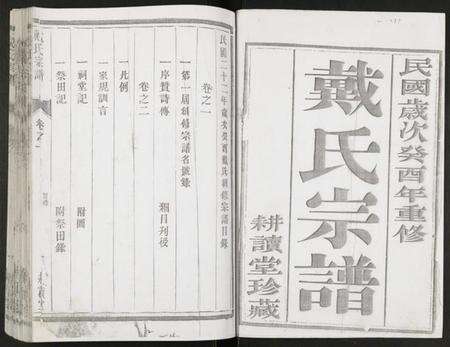 民國歲次癸酉年重修
戴氏宗譜
耕讀堂珍藏
民國二十二年歲次癸酉戴氏創修宗譜目錄
卷之一
一第一屆創修宗譜名銜錄
一序贊詩傳 細目列後
卷之二
一凡例
一家規訓言
一祠堂記 附圖
一祭田記 附祭田錄
戴氏宗譜
卷之一